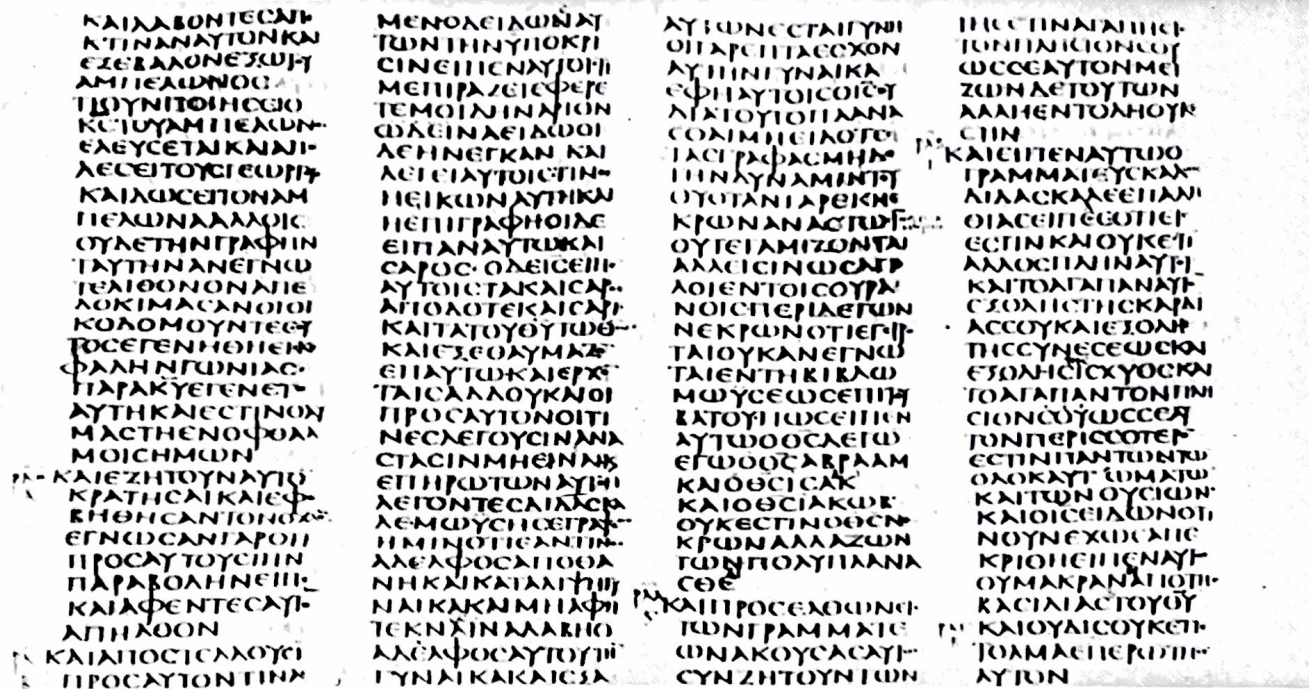 ΚΑΙΛΑΒΟΝΤΕCΑΠΕ
ΚΤΙΝΑΝΑΥΤΟΝΚΑΙ
ΕΞΕΒΑΛΟΝΕΞΩΤΟΥ
ΑΜΠΕΛΩΝΟC
ΤΙΟΥΝΠΟΙΗCΕΙΟ
ΚCΤΟΥΑΜΠΕΛΩΝΟC
ΕΛΕΥCΕΤΑΙΚΑΙΑΠΟ
ΛΕCΕΙΤΟΥCΓΕΩΡΓΟΥC
ΚΑΙΔΩCΕΙΤΟΝΑΜ
ΠΕΛΩΝΑΑΛΛΟΙC
ΟΥΔΕΤΗΝΓΡΑΦΗΝ
ΤΑΥΤΗΝΑΝΕΓΝΩ
ΤΕΛΙΘΟΝΟΝΑΠΕ
ΔΟΚΙΜΑCΑΝΟΙΟΙ
ΚΟΔΟΜΟΥΝΤΕCΟΥ
ΤΟCΕΓΕΝΗΘΗΕΙCΚΕ
ΦΑΛΗΝΓΩΝΙΑC
ΠΑΡΑΚΥΕΓΕΝΕΤΟ
ΑΥΤΗΚΑΙΕCΤΙΝΘΑΥ
ΜΑCΤΗΕΝΟΦΘΑΛ
ΜΟΙCΗΜΩΝ
ΚΑΙΕΖΗΤΟΥΝΑΥΤΟ
ΚΡΑΤΗCΑΙΚΑΙΕΦΟ
ΒΗΘΗCΑΝΤΟΝΟΧΛΟΝ
ΕΓΝΩCΑΝΓΑΡΟΤΙ
ΠΡΟCΑΥΤΟΥCΤΗΝ
ΠΑΡΑΒΟΛΗΝΕΙΠΕ
ΚΑΙΑΦΕΝΤΕCΑΥΤΟ
ΑΠΗΛΘΟΝ
ΚΑΙΑΠΟCΤΕΛΛΟΥCΙ
ΠΡΟCΑΥΤΟΝΤΙΝΑ
ΜΕΝΟΔΕΙΔΩΝΑΥ
ΤΩΝΤΗΝΥΠΟΚΡΙ
CΙΝΕΙΠΕΝΑΥΤΟΙCΤΙ
ΜΕΠΙΡΑΖΕΤΕΦΕΡΕ
ΤΕΜΟΙΔΗΝΑΡΙΟΝ
ΩΔΕΙΝΑΕΙΔΩΟΙ
ΔΕΗΝΕΓΚΑΝ ΚΑΙ
ΛΕΓΕΙΑΥΤΟΙCΤΙΝΟC
ΗΕΙΚΩΝΑΥΤΗΚΑΙ
ΗΕΠΙΓΡΑΦΗΟΙΔΕ
ΕΙΠΑΝΑΥΤΩΚΑΙ
CΑΡΟC·ΟΔΕΙCΕΙΠΕ
ΑΥΤΟΙCΤΑΚΑΙCΑΡΟC
ΑΠΟΔΟΤΕΚΑΙCΑΡΙ
ΚΑΙΤΑΤΟΥΘΥΤΩΘΩ
ΚΑΙΕΞΕΘΑΥΜΑΖΟΝ
ΕΠΑΥΤΩΚΑΙΕΡΧΟΝ
ΤΑΙCΑΔΔΟΥΚΑΙΟΙ
ΠΡΟCΑΥΤΟΝΟΙΤΙ
ΝΕCΛΕΓΟΥCΙΝΑΝΑ
CΤΑCΙΝΜΗΕΙΝΑΙΚΑΙ
ΕΠΗΡΩΤΩΝΑΥΤΟΝ
ΛΕΓΟΝΤΕCΔΙΔΑCΚΑ
ΛΕΜΩΥCΗCΕΓΡΑΨΕΝ
ΗΜΙΝΟΤΙΕΑΝΤΙΝΟC
ΑΔΕΛΦΟCΑΠΟΘΑ
ΝΗΚΑΙΚΑΤΑΛΙΠΗΓΥ
ΝΑΙΚΑΚΑΙΜΗΑΦΗ
ΤΕΚΝΑΙΝΑΛΑΒΗΟ
ΑΔΕΛΦΟCΑΥΤΟΥΤΗ
ΓΥΝΑΙΚΑΚΑΙΕΞΑ
ΑΥΤΩΝΕCΤΑΙΓΥΝΗ
ΟΙΓΑΡΕΠΤΑΕCΧΟΝ
ΑΥΤΗΝΓΥΝΑΙΚΑ
ΕΦΗΑΥΤΟΙCΟΙCΟΥ
ΔΙΑΤΟΥΤΟΠΛΑΝΑ
CΘΑΙΜΗΕΙΔΟΤΕC
ΤΑCΓΡΑΦΑCΜΗΔΕ
ΤΗΝΔΥΝΑΜΙΝΤΟΥ
ΘΥΟΤΑΝΓΑΡΕΚΝΕ
ΚΡΩΝΑΝΑCΤΩCΙΝ
ΟΥΤΕΓΑΜΙΖΟΝΤΑΙ
ΑΛΛΕΙCΙΝΩCΑΓΓΕ
ΛΟΙΕΝΤΟΙCΟΥΡΑ
ΝΟΙCΠΕΡΙΔΕΤΩΝ
ΝΕΚΡΩΝΟΤΙΕΓΕΙΡΟΝ
ΤΑΙΟΥΚΑΝΕΓΝΩ
ΤΑΙΕΝΤΗΒΙΒΛΩ
ΜΩΥCΕΩCΕΠΙΤΟΥ
ΒΑΤΟΥΠΩCΕΙΠΕΝ
ΑΥΤΩΟΘCΛΕΓΩ
ΕΓΩΟΘCΑΒΡΑΑΜ
ΚΑΙΟΘCΙCΑΚ
ΚΑΙΟΘCΙΑΚΩΒ
ΟΥΚΕCΤΙΝΟΘCΝΕ
ΚΡΩΝΑΛΛΑΖΩΝ
ΤΩΝΠΟΛΥΠΛΑΝΑ
CΘΕ
ΚΑΙΠΡΟCΕΛΘΩΝΕΙC
ΤΩΝΓΡΑΜΜΑΤΕ
ΩΝΑΚΟΥCΑCΑΥΤΩΝ
CΥΝΖΗΤΟΥΝΤΩΝ
ΤΗCΕΤΙΝΑΓΑΠΗCΕΙC
ΤΟΝΠΛΗCΙΟΝCΟΥ
ΩCCΕΑΥΤΟΝΜΕΙ
ΖΩΝΔΕΤΟΥΤΩΝ
ΑΛΛΗΕΝΤΟΛΗΟΥΚΕ
CΤΙΝ
ΚΑΙΕΙΠΕΝΑΥΤΩΟ
ΓΡΑΜΜΑΤΕΥCΚΑΛΩC
ΔΙΔΑCΚΑΛΕΕΠΑΛΗ
ΘΙΑCΕΙΠΕCΟΤΙΕΙC
ΕCΤΙΝΚΑΙΟΥΚΕCΤΙ
ΑΛΛΟCΠΛΗΝΑΥΤΟΥ
ΚΑΙΤΟΑΓΑΠΑΝΑΥΤΟ
ΕΞΟΛΗCΤΗCΚΑΡΔΙ
ΑCCΟΥΚΑΙΕΞΟΛΗC
ΤΗCCΥΝΕCΕΩCΚΑΙ
ΕΞΟΛΗCΙCΧΥΟCΚΑΙ
ΤΟΑΓΑΠΑΝΤΟΝΠΛΗ
CΙΟΝCΟΥΩCCΕΑΥ
ΤΟΝΠΕΡΙCCΟΤΕΡΟ
ΕCΤΙΝΠΑΝΤΩΝΤΩ
ΟΛΟΚΑΥΤΩΜΑΤΩ
ΚΑΙΤΩΝΘΥCΙΩΝ
ΚΑΙΟΙCΕΙΔΩΝΟΤΙ
ΝΟΥΝΕΧΩCΑΠΕ
ΚΡΙΘΗΕΙΠΕΝΑΥΤΩ
ΟΥΜΑΚΡΑΝΑΠΟΤΗC
ΒΑCΙΛΙΑCΤΟΥΘΥ
ΚΑΙΟΥΔΙCΟΥΚΕΤΙ
ΤΟΛΜΑΕΠΕΡΩΤΗCΑΙ
ΑΥΤΟΝ